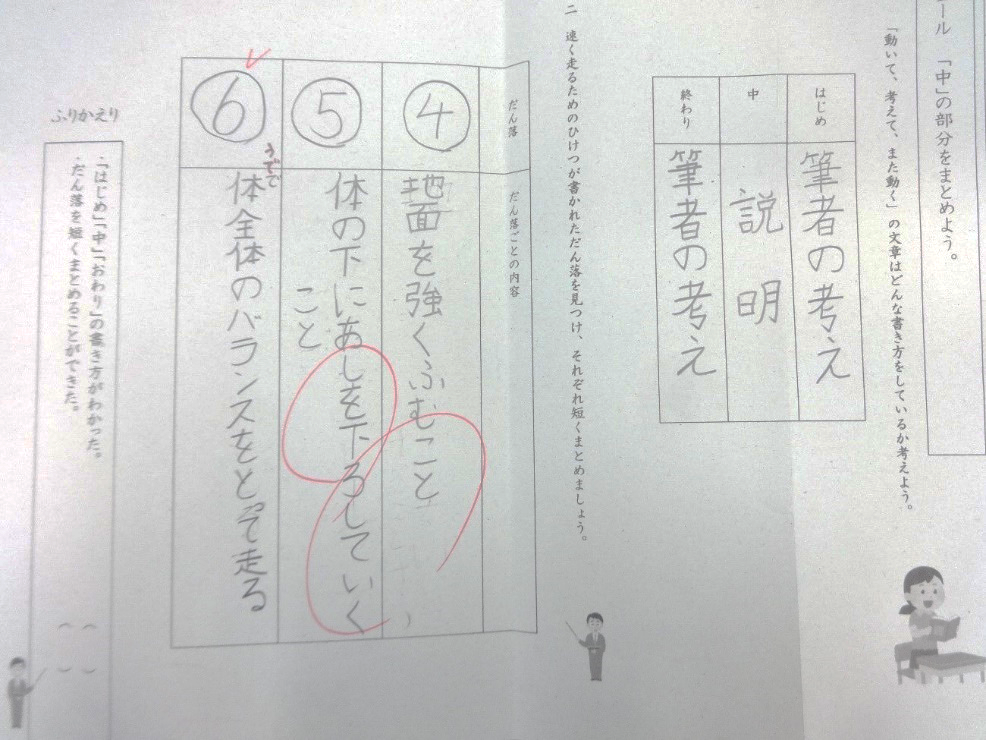 ール 「中」の部分をまとめよう。
「動いて、考えて、また動く」の文章はどんな書き方をしているか考えよう。
はじめ
筆者の考え
中
説明
終わり
筆者の考え
二 速く走るためのひけつが書かれただん落を見つけ、それぞれ短くまとめましょう。
だん落
だん落ごとの内容
④
地面を強くふむこと
⑤
体の下にあしを下ろしていく
こと
⑥
うでで
体全体のバランスをとって走る
ふりかえり
・「はじめ」「中」「おわり」の書き方がわかった。
・だん落を短くまとめることができた。